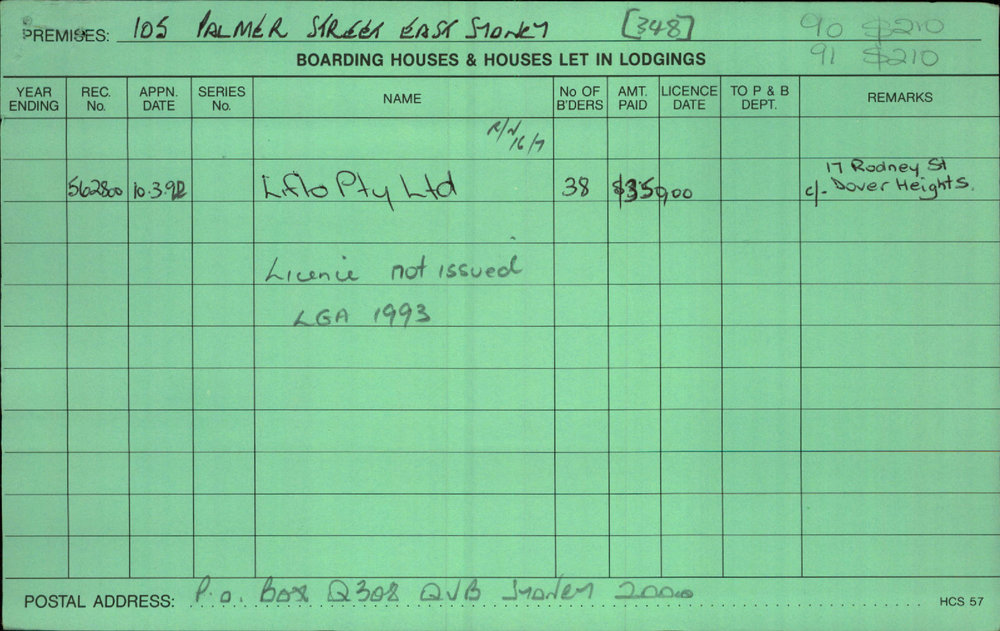 PREMISES: 105 PALMER STREET EAST SYDNEY [348] 90 $210
91 $210
BOARDING HOUSES & HOUSES LET IN LODGINGS
YEAR ENDING REC. No. APPN. DATE SERIES No. NAME No OF B'DERS AMT. PAID LICENCE DATE TO P & B DEPT. REMARKS
R/N 16/7
562800 10.3.92 Liflo Pty Ltd 38 $350,00 17 Rodney St
c/- Dover Heights.
Licence not issued
LGA 1993
POSTAL ADDRESS: P.O. Box Q308 QVB SYDNEY 2000 HCS 57